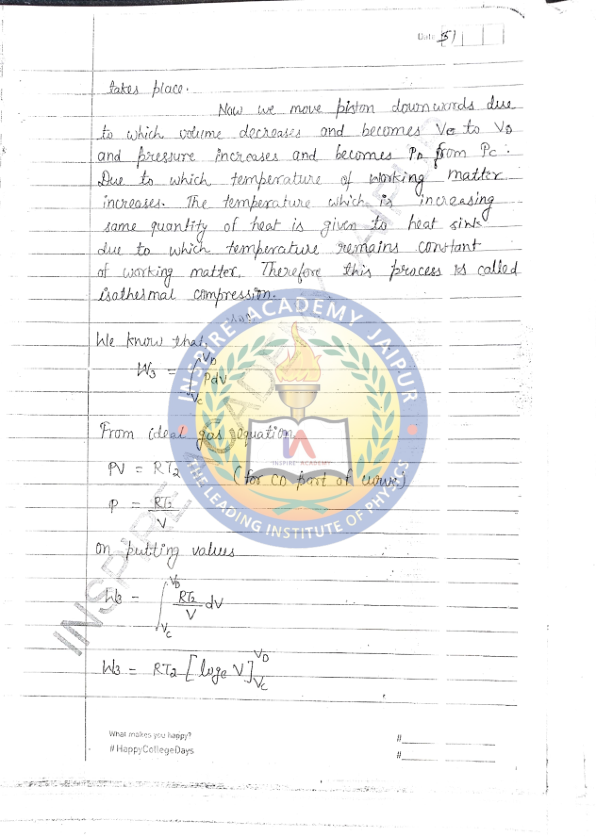 Date 51
takes place.
Now we move piston downwords due
to which volume decreases and becomes VC to VD
and pressure increases and becomes PD from PC.
Due to which temperature of working matter
increases. The temperature which is increasing
same quantity of heat is given to heat sink
due to which temperature remains constant
of working matter. Therefore this process is called
isothermal compression.
We know that,
W3 = ∫_VC^VD PdV
From ideal gas equation
PV = RT2 (for CD part of curve)
P = RT2/V
on putting values
W3 = ∫_VC^VD RT2/V dV
W3 = RT2 [loge V]_VC^VD
What makes you happy?
#HappyCollegeDays
#
#
INSPIRE ACADEMY JAIPUR
INSPIRE ACADEMY
THE LEADING INSTITUTE OF PHYSICS
INSPIRE ACADEMY JAIPUR